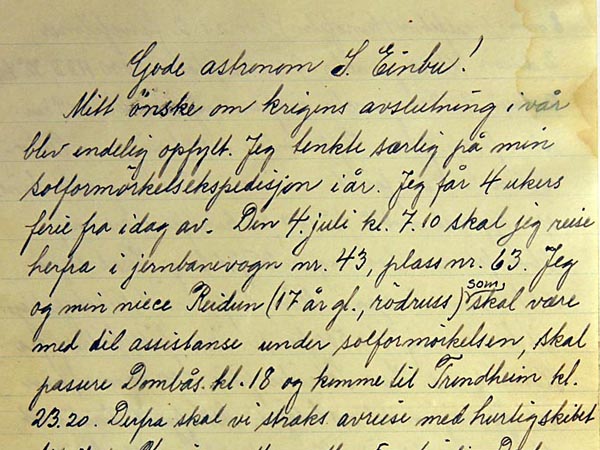 Gode astronom S. Einbu!
Mitt önske om krigens avslutning i vår
blev endelig opfylt. Jeg tenkte særlig på min
solformörkelsekspedisjon i år. Jeg får 4 ukers
ferie fra idag av. Den 4. juli kl. 7.10 skal jeg reise
herfra i jernbanevogn nr. 43, plass nr. 63. Jeg
og min niece Reidun (17 år gl., rödruss) som skal være
med til assistanse under solformörkelsen, skal
passere Dombås kl. 18 og komme til Trondheim kl.
23.20. Derfra skal vi straks avreise med hurtigskibet